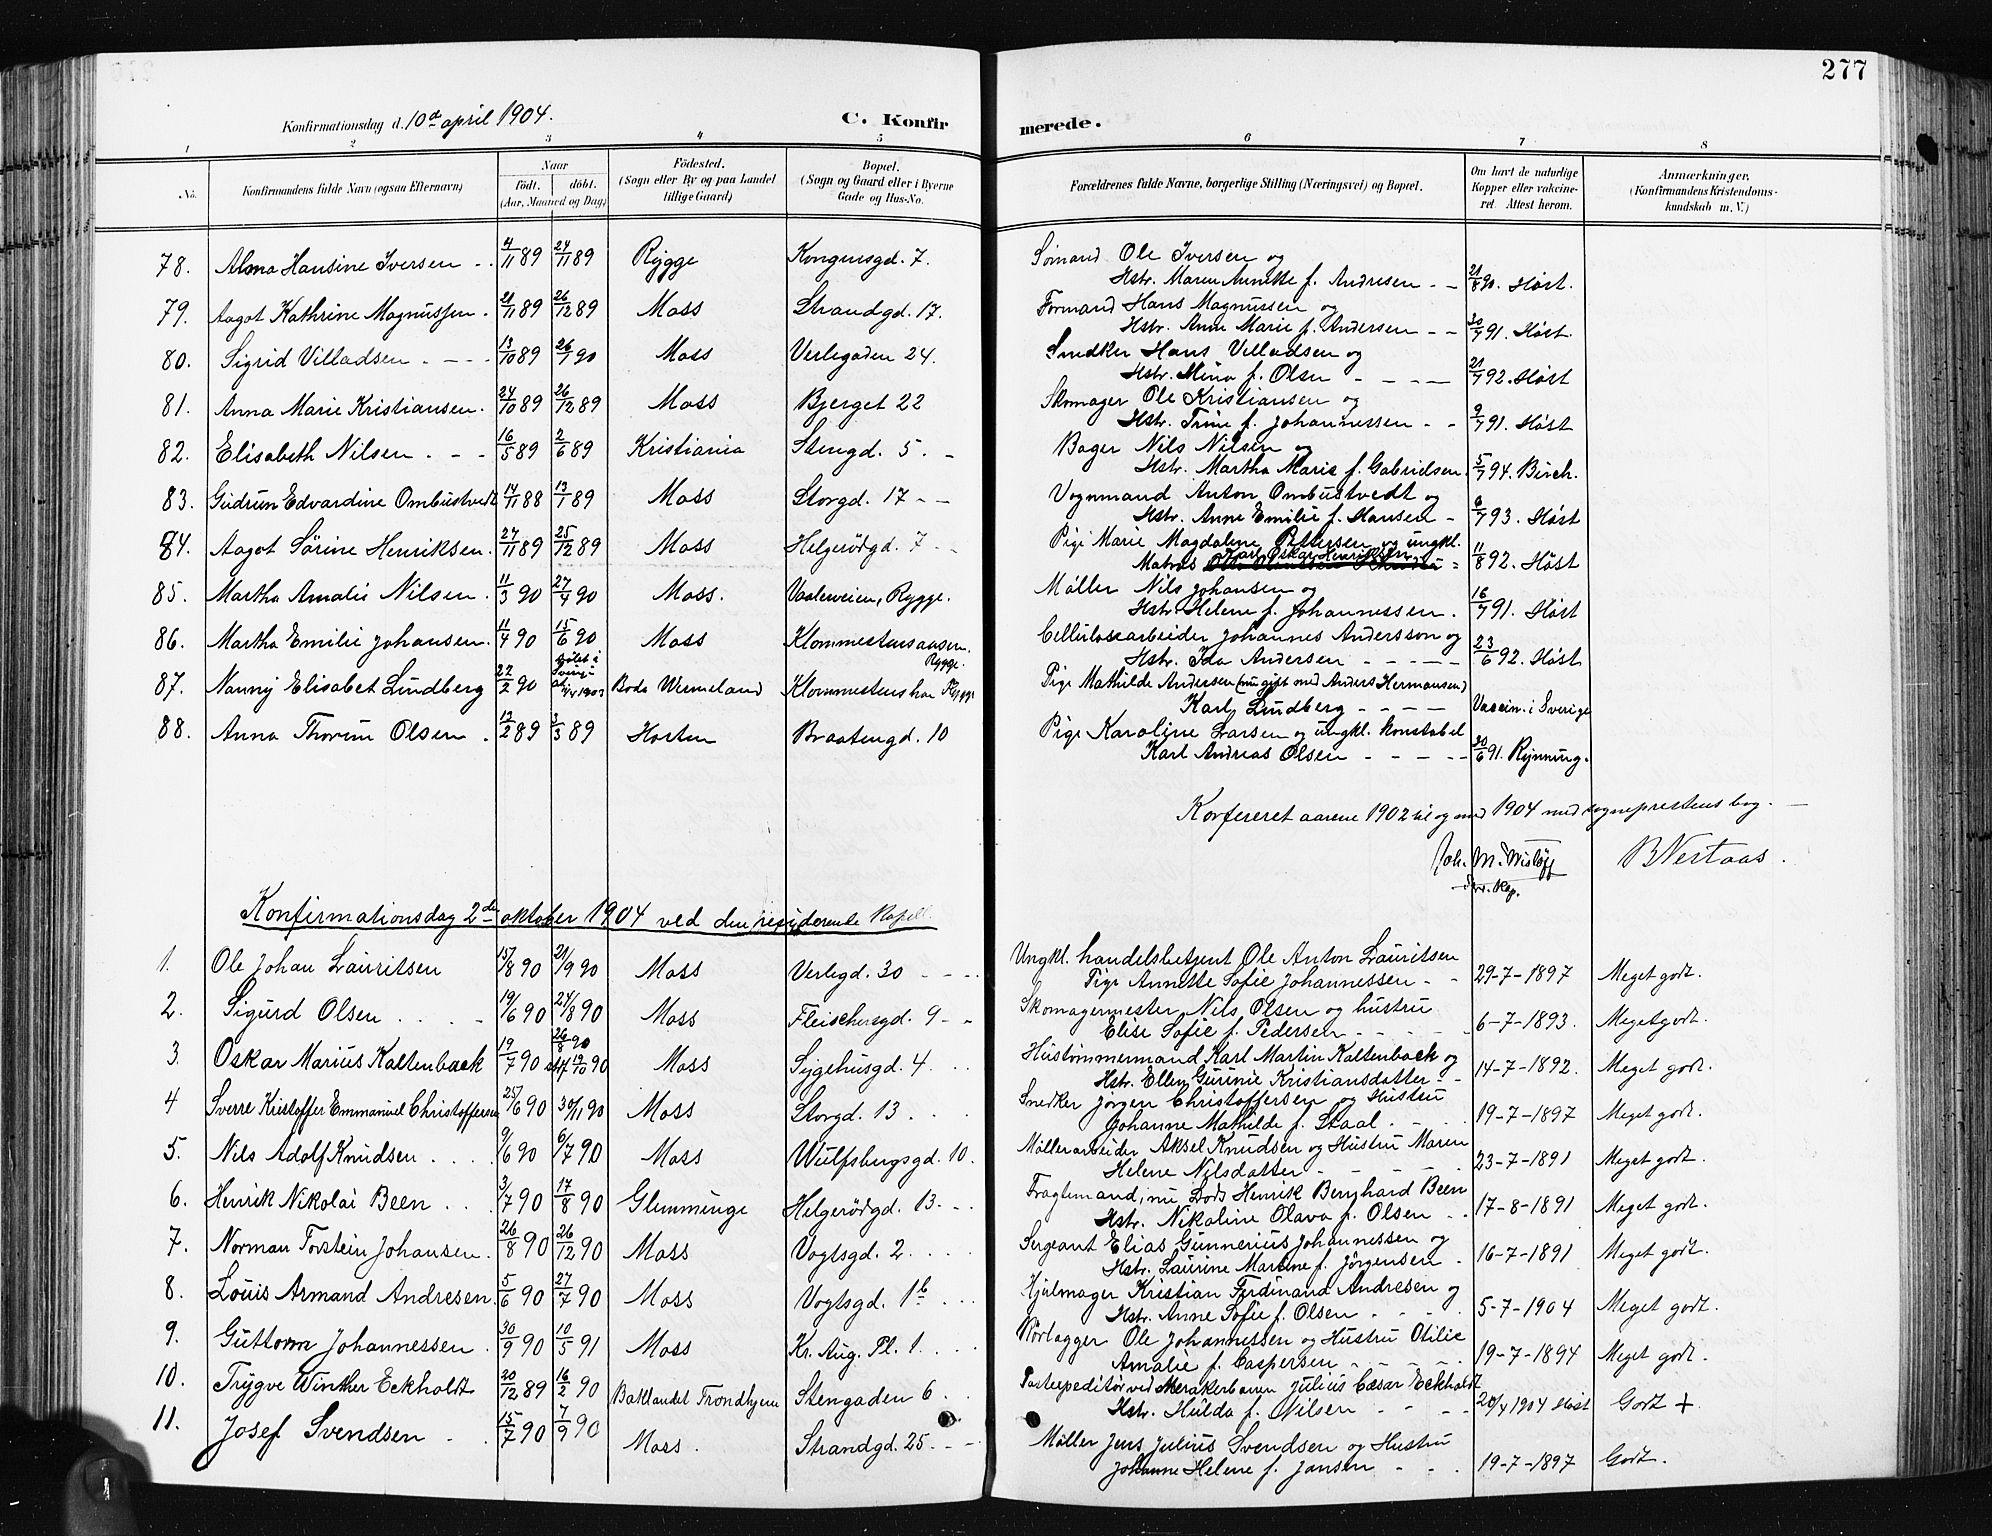 277
Konfirmationsdag d. 10de april 1904.
C. Konfirmerede.
1 2 3 4 5 6 7 8
No. Konfirmandens fulde Navn (ogsaa Efternavn) Naar født. døbt. (Aar, Maaned og Dag) Fødested. (Sogn eller By og paa Landet tillige Gaard) Bopæl. (Sogn og Gaard eller i Byerne Gade og Hus-No. Forældrenes fulde Navne, borgerlige Stilling (Næringsvei) og Bopæl. Om havt de naturlige Kopper eller vakcineret. Attest herom. Anmærkninger. (Konfirmandens Kristendomskundskab m. V.)
78. Alma Hansine Iversen 4/11 89 24/11 89 Rygge Kongensgd. 7. Sømand Ole Iversen og
Hstr. Maren Annette f. Andresen 21/8 90. Høst.
79. Aagot Kathrine Magnussen 21/11 89 26/12 89 Moss Strandgd. 17. Formand Hans Magnussen og
Hstr. Anne Marie f. Andersen 30/7 91. Høst
80. Sigrid Villadsen 13/10 89 26/1 90 Moss Verlegaden 24. Snedker Hans Villadsen og
Hstr. Mina f. Olsen 21/7 92. Høst
81. Anna Marie Kristiansen 24/10 89 26/12 89 Moss Bjerget 22 Skomager Ole Kristiansen og
Hstr. Trine f. Johannessen 9/7 91. Høst
82. Elisabeth Nilsen 16/5 89 2/6 89 Kristiania Stengd. 5. Bager Nils Nilsen og
Hstr. Martha Marie f. Gabrielsen 5/7 94. Birch.
83. Gudrun Edvardine Ombustvedt 14/11 88 13/1 89 Moss Storgd. 17 Vognmand Anton Ombustvedt og
Hstr. Anne Emilie f. Hansen 6/7 93. Høst
84. Aagot Sørine Henriksen 27/11 89 25/12 89 Moss Helgerödgd. 7 Pige Marie Magdalene Pettersen og ungkl.
Matros Karl Oskar Henriksen 11/8 92. Høst
85. Martha Amalie Nilsen 11/3 90 27/4 90 Moss. Vaalerveien, Rygge. Møller Nils Johansen og
Hstr. Helene f. Johannessen 16/7 91. Høst
86. Martha Emilie Johansen 11/4 90 15/6 90 Moss Klommestensaasen. Rygge. Cellulosearbeider Johannes Andersson og
Hstr. Ida Andersen 23/6 92. Høst
87. Nanny Elisabet Lundberg 22/2 90 døbt i Sverige Boda Wermeland Klommestenshau Rygge Pige Mathilde Andersen (nu gift med Anders Hermansen)
Karl Lundberg Vaccin. i Sverige
88. Anna Thorine Olsen 12/2 89 3/3 89 Horten Braatengd. 10 Pige Karoline Larsen og ungkl. konstabel
Karl Andreas Olsen 30/6 91. Rynning.
Konfereret aarene 1902 til og med 1904 med sogneprestens bog.
Joh. M. Wisløff BNestaas.
res. kap.
Konfirmationsdag 2den oktober 1904 ved den residerende Kapell.
1. Ole Johan Lauritsen 15/8 90 21/9 90 Moss Verlegd. 30 Ungkl. handelsbetjent Ole Anton Lauritsen
Pige Annette Sofie Johannessen 29-7-1897 Meget godt.
2. Sigurd Olsen 19/6 90 24/8 90 Moss Fleischersgd. 9 Skomagermester Nils Olsen og hustru
Elise Sofie f. Pedersen 6-7-1893. Meget godt.
3. Oskar Marius Kaltenback 19/7 90 26/8 90 st 19/10 90 Moss Sygehusgd. 4 Hustømmermand Karl Martin Kaltenback og
Hstr. Ellen Gurinie Kristiansdatter 14-7-1892. Meget godt.
4 Sverre Kristoffer Emmanuel Christoffersen 25/6 90 30/11 90 Moss Storgd. 13 Snedker Jørgen Christoffersen og Hustru
Johanne Mathilde f. Staal 19-7-1897 Meget godt.
5. Nils Adolf Knudsen 9/6 90 6/7 90 Moss Wulfsbergsgd. 10. Møllerarbeider Aksel Knudsen og Hustru Maren
Helene Nilsdatter 23-7-1891 Meget godt.
6. Henrik Nikolai Been 3/7 90 17/8 90 Glemminge Helgerödgd. 13 Fragtemand, nu Lods Henrik Bernhard Been
Hstr. Nikoline Olava f. Olsen 17-8-1891 Meget godt.
7. Norman Torstein Johansen 26/8 90 26/12 90 Moss Vogtsgd. 2 Sergeant Elias Gunnerius Johannessen og
Hstr. Laurine Martine f. Jörgensen 16-7-1891 Meget godt.
8. Louis Armand Andresen 5/6 90 27/7 90 Moss Vogtsgd. 1b Hjulmager Kristian Ferdinand Andresen og
Hstr. Anne Sofie f. Olsen 5-7-1904 Meget godt.
9. Guttorm Johannessen 30/9 90 10/5 91 Moss Kr. Aug. Pl. 1 Rørlægger Ole Johannessen og Hustru Otilie
Amalie f. Caspersen 19-7-1894 Meget godt.
10. Trygve Winther Eckholdt 20/12 89 16/2 90 Baklandet Trondhjem Stengaden 6 Partexpeditør ved Merakerbanen Julius Cæsar Eckholdt
Hstr. Hulda f. Nilsen 20/4 1904 Høst Godt +
11. Josef Svendsen 15/7 90 7/9 90 Moss. Strandgd. 25 Møller Jens Julius Svendsen og Hustru
Johanne Helene f. Jansen 19-7-1897 Godt.